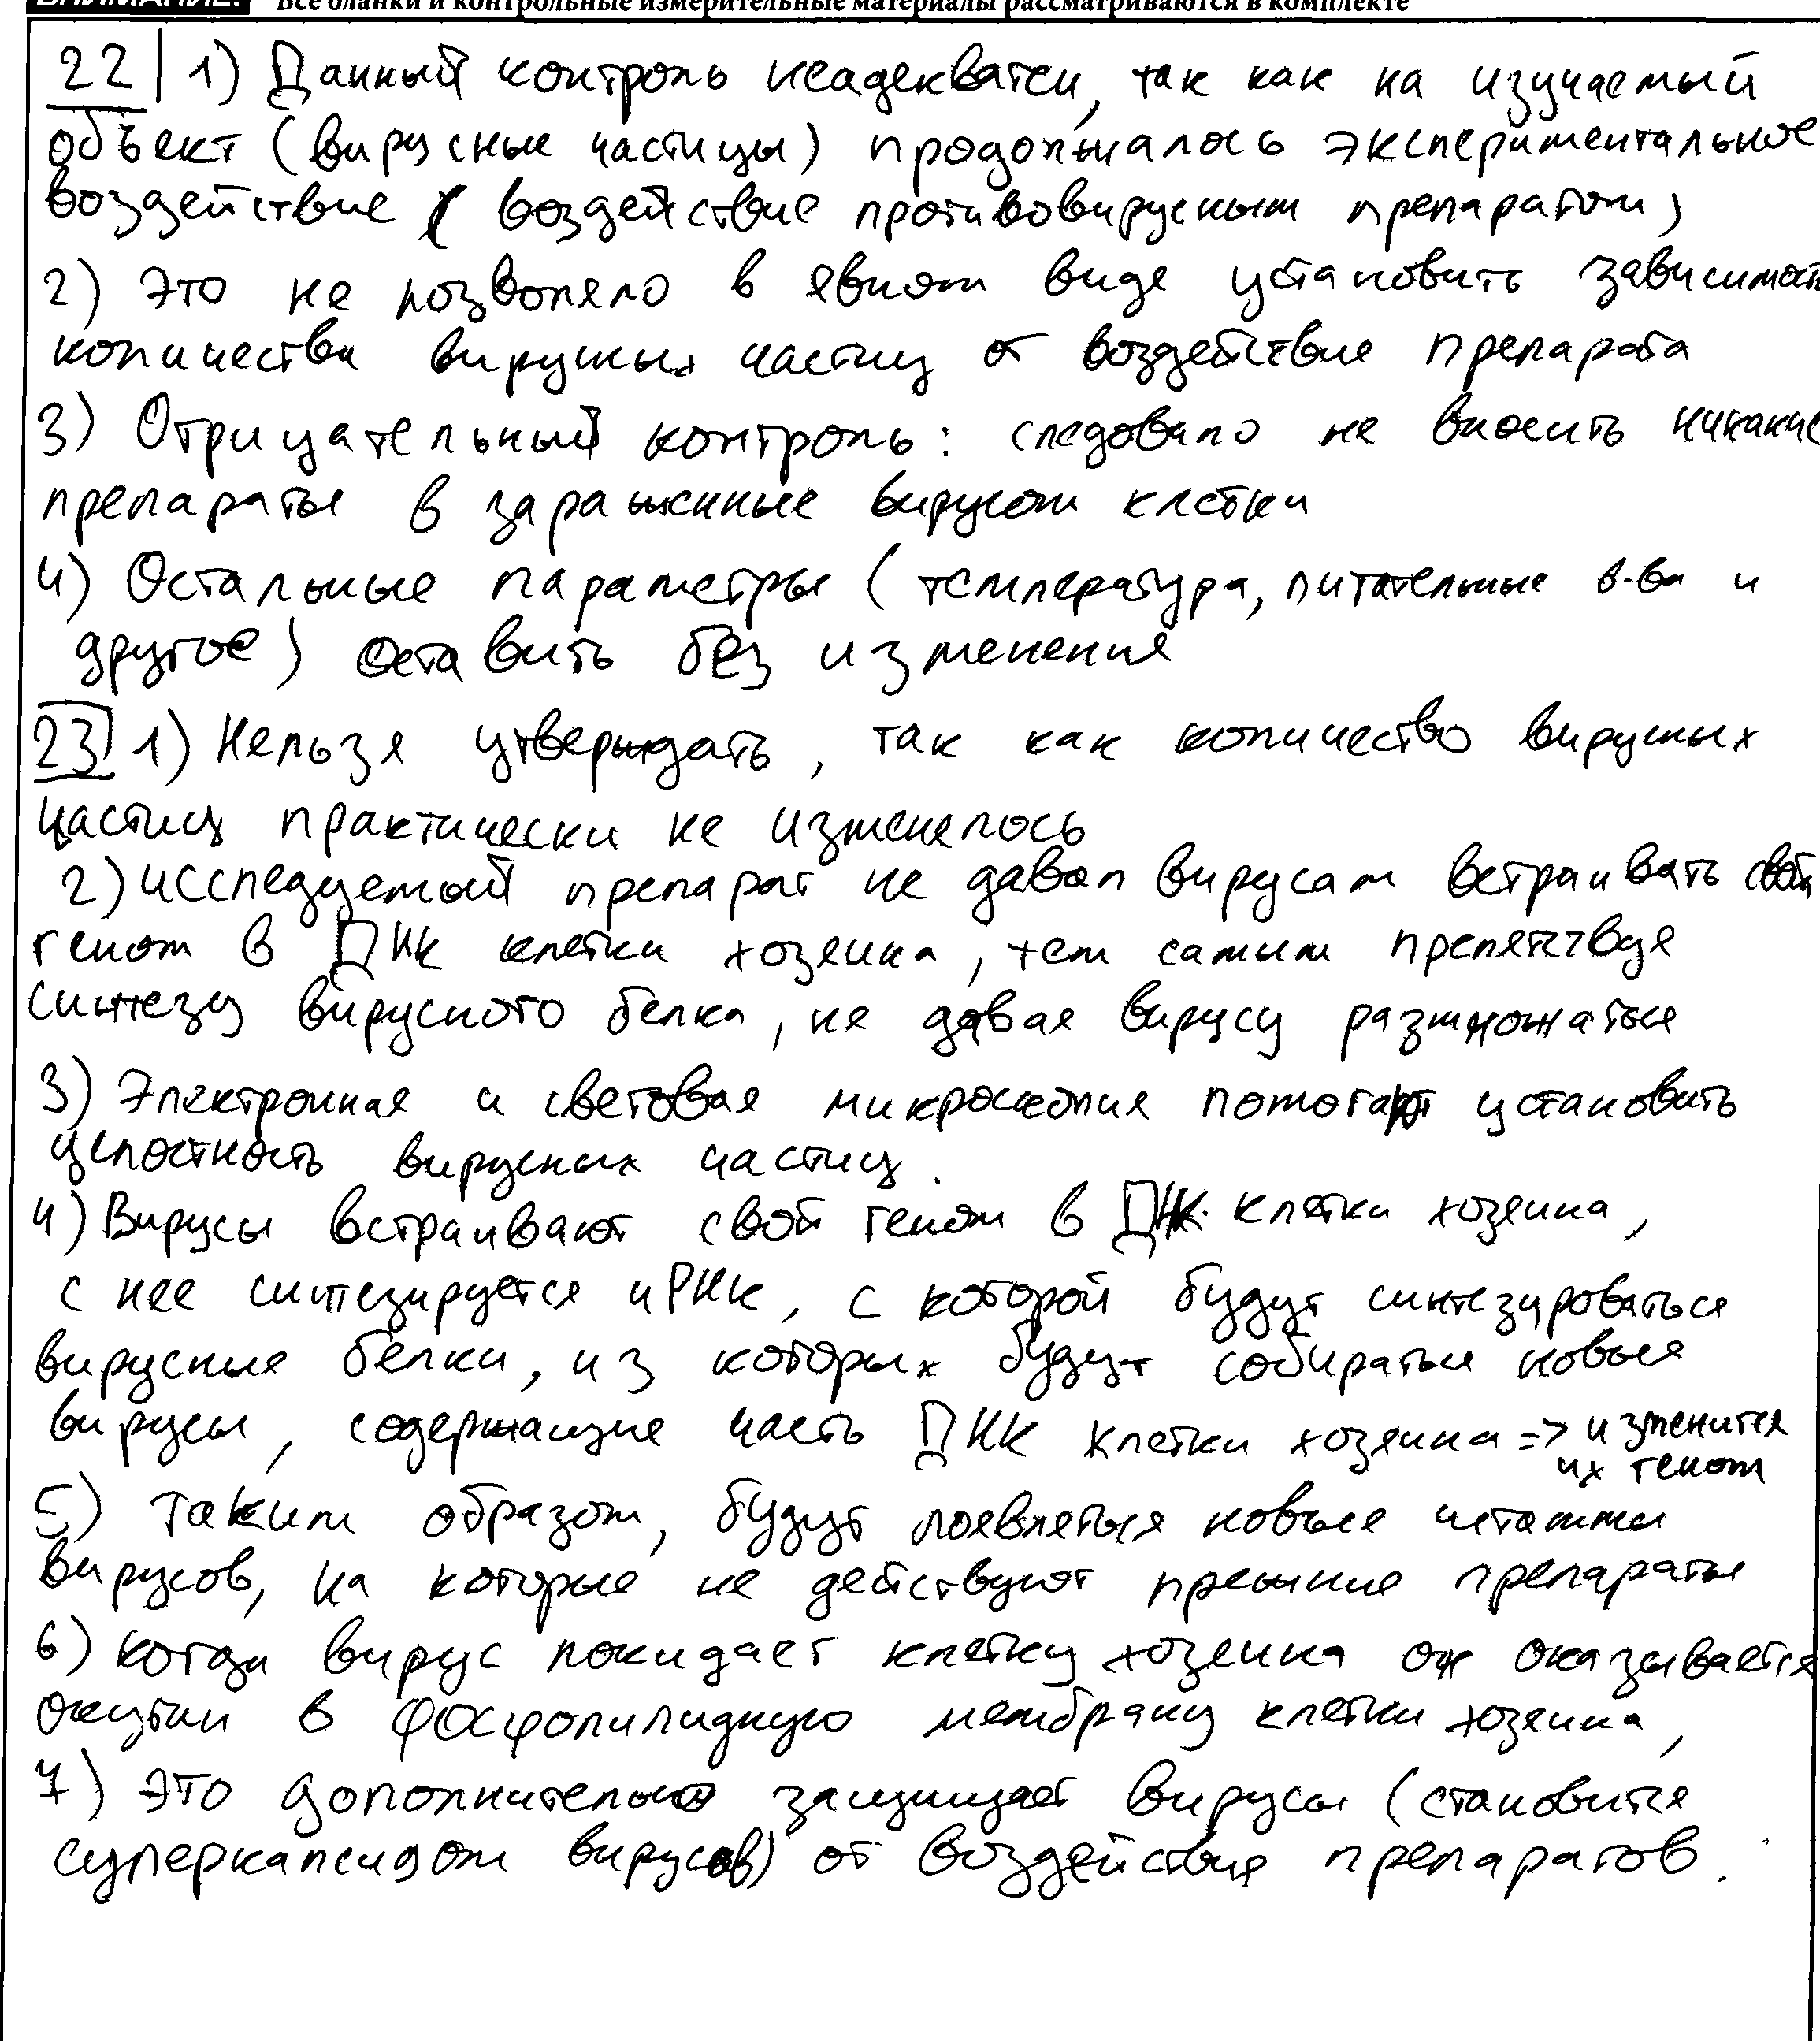 ВНИМАНИЕ! Все бланки и контрольные измерительные материалы рассматриваются в комплекте
22 1) Данный контроль неадекватен, так как на изучаемый
объект (вирусные частицы) продолжалось экспериментальное
воздействие (воздействие противовирусным препаратом)
2) Это не позволяло в явном виде установить зависимость
количества вирусных частиц от воздействие препарата
3) Отрицательный контроль: следовало не вносить никакие
препараты в зараженные вирусом клетки
4) Остальные параметры (температура, питательные в-ва и
другое) оставить без изменения
23 1) Нельзя утверждать, так как количество вирусных
частиц практически не изменялось
2) исследуемый препарат не давал вирусам встраивать свой
геном в ДНК клетки хозяина, тем самым препятствуя
синтезу вирусного белка, не давая вирусу размножаться
3) Электронная и световая микроскопия помогают установить
целостность вирусных частиц.
4) Вирусы встраивают свой геном в ДНК клетки хозяина,
с нее синтезируется иРНК, с которой будут синтезироваться
вирусные белки, из которых будут собираться новые
вирусы, содержащие часть ДНК клетки хозяина => изменится
их геном
5) Таким образом, будут появляться новые штаммы
вирусов, на которые не действуют прежние препараты
6) Когда вирус покидает клетку хозяина он оказывается
окутан в фосфолипидную мембрану клетки хозяина,
7) это дополнительно защищает вирусы (становится
суперкапсидом вирусов) от воздействия препаратов.